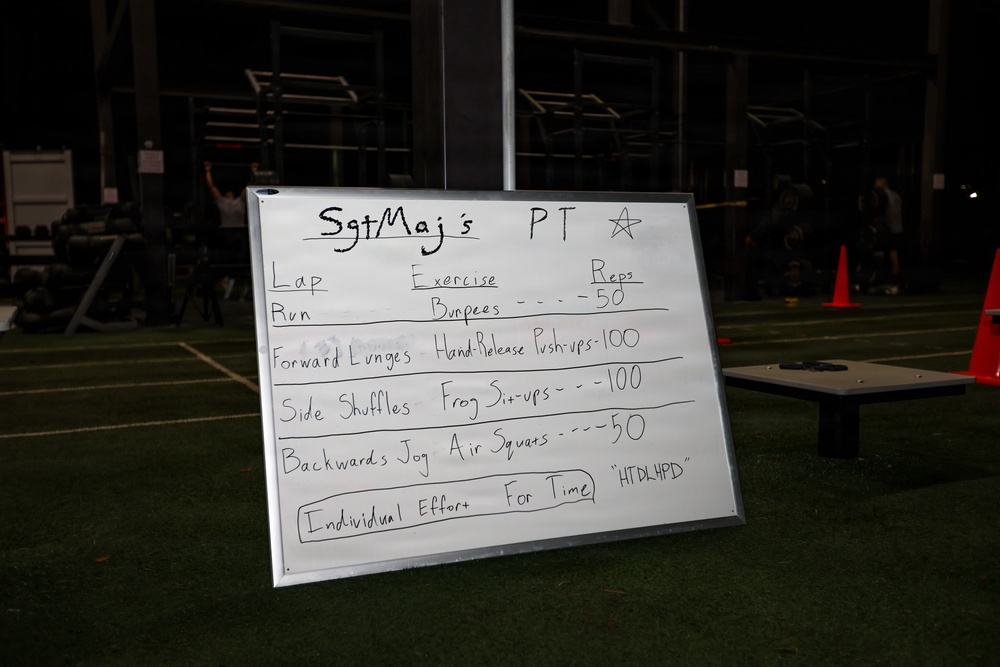 SgtMaj's PT ☆
Lap Exercise Reps
Run Burpees - - - - - 50
Forward Lunges Hand-Release Push-ups - 100
Side Shuffles Frog Sit-ups - - - 100
Backwards Jog Air Squats - - - - 50
Individual Effort For Time "HTDLHPD"